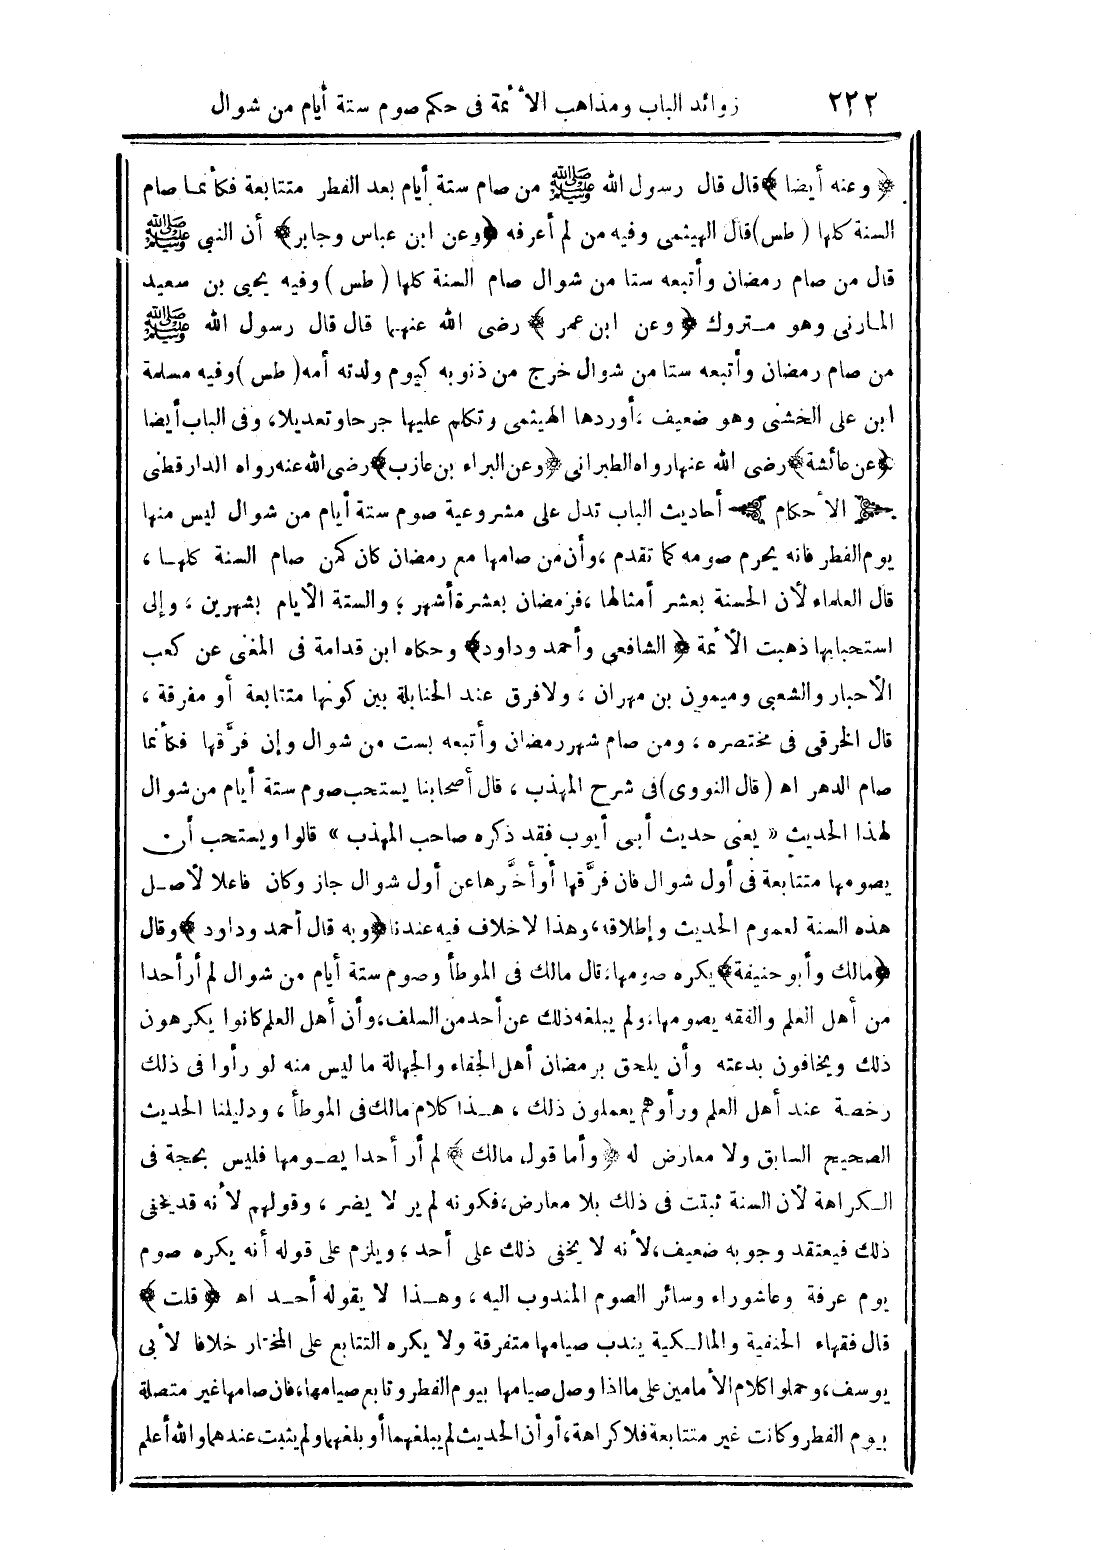 ٢٢٢ زوائد الباب ومذاهب الأئمة فى حكم صوم ستة أيام من شوال
﴿ وعنه أيضا ﴾ قال قال رسول الله ﷺ من صام ستة أيام بعد الفطر متتابعة فكأنما صام
السنة كلها ( طس ) قال الهيثمى وفيه من لم أعرفه ﴿ وعن ابن عباس وجابر ﴾ أن النبي ﷺ
قال من صام رمضان وأتبعه ستا من شوال صام السنة كلها ( طس ) وفيه يحيى بن سعيد
المازنى وهو متروك ﴿ وعن ابن عمر ﴾ رضى الله عنهما قال قال رسول الله ﷺ
من صام رمضان وأتبعه ستا من شوال خرج من ذنوبه كيوم ولدته أمه ( طس ) وفيه مسلمة
ابن على الخشنى وهو ضعيف ، أوردها الهيثمى وتكلم عليها جرحا وتعديلا ، وفى الباب أيضا
﴿ عن عائشة ﴾ رضى الله عنها رواه الطبرانى ﴿ وعن البراء بن عازب ﴾ رضى الله عنه رواه الدارقطنى
الأحكام أحاديث الباب تدل على مشروعية صوم ستة أيام من شوال ليس منها
يوم الفطر فانه يحرم صومه كما تقدم ، وأن من صامها مع رمضان كان كمن صام السنة كلها ،
قال العلماء لأن الحسنة بعشر أمثالها ، فرمضان بعشرة أشهر ، والستة الأيام بشهرين ، وإلى
استحبابها ذهبت الأئمة ﴿ الشافعي وأحمد وداود ﴾ وحكاه ابن قدامة فى المغنى عن كعب
الأحبار والشعبى وميمون بن مهران ، ولافرق عند الحنابلة بين كونها متتابعة أو مفرقة ،
قال الخرقى فى مختصره ، ومن صام شهر رمضان وأتبعه بست من شوال وإن فرَّقها فكأنما
صام الدهر اه ( قال النووى ) فى شرح المهذب ، قال أصحابنا يستحب صوم ستة أيام من شوال
لهذا الحديث « يعنى حديث أبى أيوب فقد ذكره صاحب المهذب » قالوا ويستحب أن
يصومها متتابعة فى أول شوال فان فرَّقها أو أخَّرها عن أول شوال جاز وكان فاعلا لأصل
هذه السنة لعموم الحديث وإطلاقه ، وهذا لاخلاف فيه عندنا ﴿ وبه قال أحمد وداود ﴾ وقال
﴿ مالك وأبو حنيفة ﴾ يكره صومها ، قال مالك فى الموطأ وصوم ستة أيام من شوال لم أر أحدا
من أهل العلم والفقه يصومها ، ولم يبلغه ذلك عن أحد من السلف ، وأن أهل العلم كانوا يكرهون
ذلك ويخافون بدعته وأن يلحق برمضان أهل الجفاء والجهالة ما ليس منه لو رأوا فى ذلك
رخصة عند أهل العلم ورأوهم يعملون ذلك ، هذا كلام مالك فى الموطأ ، ودليلنا الحديث
الصحيح السابق ولا معارض له ﴿ وأما قول مالك ﴾ لم أر أحدا يصومها فليس بحجة فى
الكراهة لأن السنة ثبتت فى ذلك بلا معارض ، فكونه لم ير لا يضر ، وقولهم لأنه قد يخفى
ذلك فيعتقد وجوبه ضعيف ، لأنه لا يخفى ذلك على أحد ، ويلزم على قوله أنه يكره صوم
يوم عرفة وعاشوراء وسائر الصوم المندوب اليه ، وهذا لا يقوله أحد اه ﴿ قلت ﴾
قال فقهاء الحنفية والمالكية يندب صيامها متفرقة ولا يكره التتابع على المختار خلافا لأبى
يوسف ، وحملوا كلام الأمامين على ما اذا وصل صيامها بيوم الفطر وتابع صيامها ، فان صامها غير متصلة
بيوم الفطر وكانت غير متتابعة فلا كراهة ، أو أن الحديث لم يبلغهما أو بلغهما ولم يثبت عندهما والله أعلم